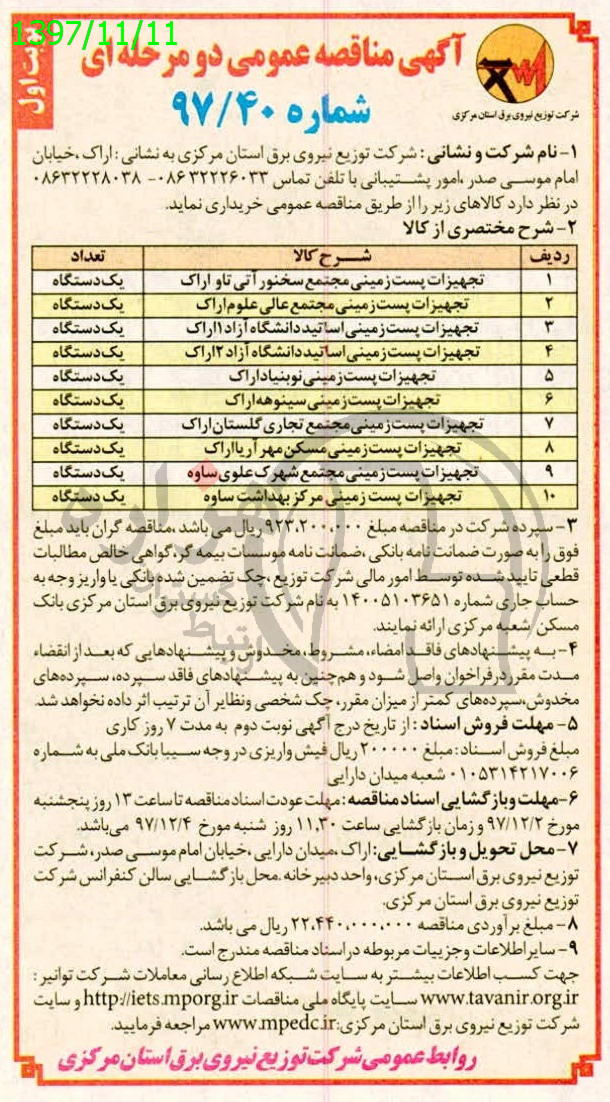 1397/11/11
نوبت اول
آگهی مناقصه عمومی دو مرحله ای
شماره ۹۷/۴۰
شرکت توزیع نیروی برق استان مرکزی
۱- نام شرکت و نشانی : شرکت توزیع نیروی برق استان مرکزی به نشانی : اراک ،خیابان
امام موسی صدر ،امور پشتیبانی با تلفن تماس ۰۸۶۳۲۲۲۶۰۳۳- ۰۸۶۳۲۲۲۸۰۳۸
در نظر دارد کالاهای زیر را از طریق مناقصه عمومی خریداری نماید.
۲- شرح مختصری از کالا
ردیف شرح کالا تعداد
۱ تجهیزات پست زمینی مجتمع سخنور آتی تاو اراک یک دستگاه
۲ تجهیزات پست زمینی مجتمع عالی علوم اراک یک دستگاه
۳ تجهیزات پست زمینی اساتید دانشگاه آزاد ۱ اراک یک دستگاه
۴ تجهیزات پست زمینی اساتید دانشگاه آزاد ۲ اراک یک دستگاه
۵ تجهیزات پست زمینی نوبنیاد اراک یک دستگاه
۶ تجهیزات پست زمینی سینوهه اراک یک دستگاه
۷ تجهیزات پست زمینی مجتمع تجاری گلستان اراک یک دستگاه
۸ تجهیزات پست زمینی مسکن مهر آریا اراک یک دستگاه
۹ تجهیزات پست زمینی مجتمع شهرک علوی ساوه یک دستگاه
۱۰ تجهیزات پست زمینی مرکز بهداشت ساوه یک دستگاه
۳- سپرده شرکت در مناقصه مبلغ ۹۲۳،۲۰۰،۰۰۰ ریال می باشد ،مناقصه گران باید مبلغ
فوق را به صورت ضمانت نامه بانکی ،ضمانت نامه موسسات بیمه گر،گواهی خالص مطالبات
قطعی تایید شده توسط امور مالی شرکت توزیع ،چک تضمین شده بانکی یا واریز وجه به
حساب جاری شماره ۱۴۰۰۵۱۰۳۶۵۱ به نام شرکت توزیع نیروی برق استان مرکزی بانک
مسکن شعبه مرکزی ارائه نمایند.
۴- به پیشنهادهای فاقد امضاء، مشروط، مخدوش و پیشنهادهایی که بعد از انقضاء
مدت مقرر در فراخوان واصل شود و هم چنین به پیشنهادهای فاقد سپرده، سپرده های
مخدوش،سپرده های کمتر از میزان مقرر، چک شخصی ونظایر آن ترتیب اثر داده نخواهد شد.
۵- مهلت فروش اسناد : از تاریخ درج آگهی نوبت دوم به مدت ۷ روز کاری
مبلغ فروش اسناد : مبلغ ۲۰۰۰۰۰ ریال فیش واریزی در وجه سیبا بانک ملی به شماره
۰۱۰۵۳۱۴۲۱۷۰۰۶ شعبه میدان دارایی
۶- مهلت وبازگشایی اسناد مناقصه : مهلت عودت اسناد مناقصه تا ساعت ۱۳ روز پنجشنبه
مورخ ۹۷/۱۲/۲ و زمان بازگشایی ساعت ۱۱.۳۰ روز شنبه مورخ ۹۷/۱۲/۴ می باشد.
۷- محل تحویل و بازگشایی: اراک ،میدان دارایی ،خیابان امام موسی صدر، شرکت
توزیع نیروی برق استان مرکزی، واحد دبیر خانه .محل بازگشایی سالن کنفرانس شرکت
توزیع نیروی برق استان مرکزی.
۸- مبلغ برآوردی مناقصه ۲۲،۴۴۰،۰۰۰،۰۰۰ ریال می باشد.
۹- سایر اطلاعات وجزییات مربوطه در اسناد مناقصه مندرج است.
جهت کسب اطلاعات بیشتر به سایت شبکه اطلاع رسانی معاملات شرکت توانیر :
www.tavanir.org.ir سایت پایگاه ملی مناقصات http://iets.mporg.ir و سایت
شرکت توزیع نیروی برق استان مرکزی:www.mpedc.ir مراجعه فرمایید.
روابط عمومی شرکت توزیع نیروی برق استان مرکزی